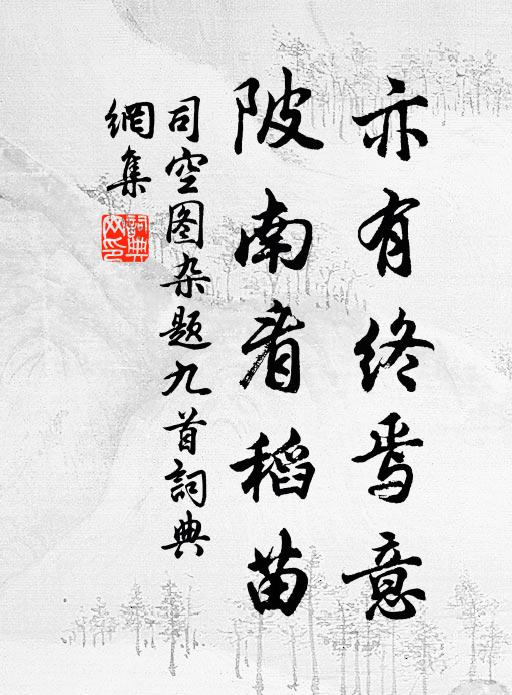 亦有终焉意
陂南看稻苗
司空图杂题九首詞典
網集
詞典
网印